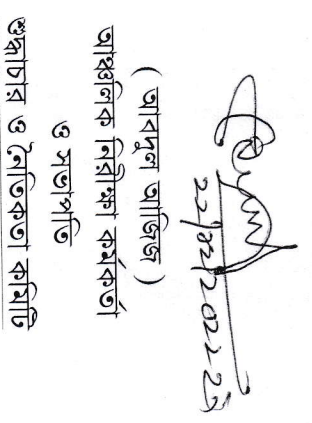 ২২/১২/২০২২ইং
( আবদুল আজিজ )
আঞ্চলিক নিরীক্ষা কর্মকর্তা
ও সভাপতি
শুদ্ধাচার ও নৈতিকতা কমিটি